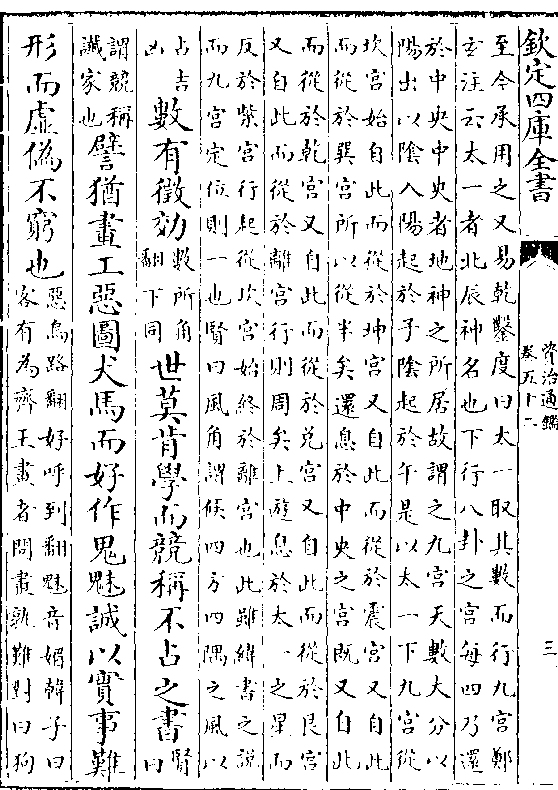 欽定四庫全書
資治通鑑
卷五十二
三
至今承用之又易乾鑿度曰太一取其數而行九宮鄭
玄注云太一者北辰神名也下行八卦之宮每四乃還
於中央中央者地神之所居故謂之九宮天數大分以
陽出以陰入陽起於子陰起於午是以太一下九宮從
坎宮始自此而從於坤宮又自此而從於震宮又自此
而從於巽宮所以從半矣還息於中央之宮既又自此
而從於乾宮又自此而從於兌宮又自此而從於艮宮
又自此而從於離宮行則周矣上遊息於太一之星而
反於紫宮行起從坎宮始終於離宮也此雖緯書之說
而九宮定位則一也賢曰風角謂候四方四隅之風以
占吉凶數有徵効數所角翻下同世莫肯學而競稱不占之書賢曰
謂競稱讖家也譬猶畫工惡圖犬馬而好作鬼魅誠以實事難
形而虛偽不窮也惡烏路翻好呼到翻魅音媚韓子曰客有為齊王畫者問畫孰難對曰狗